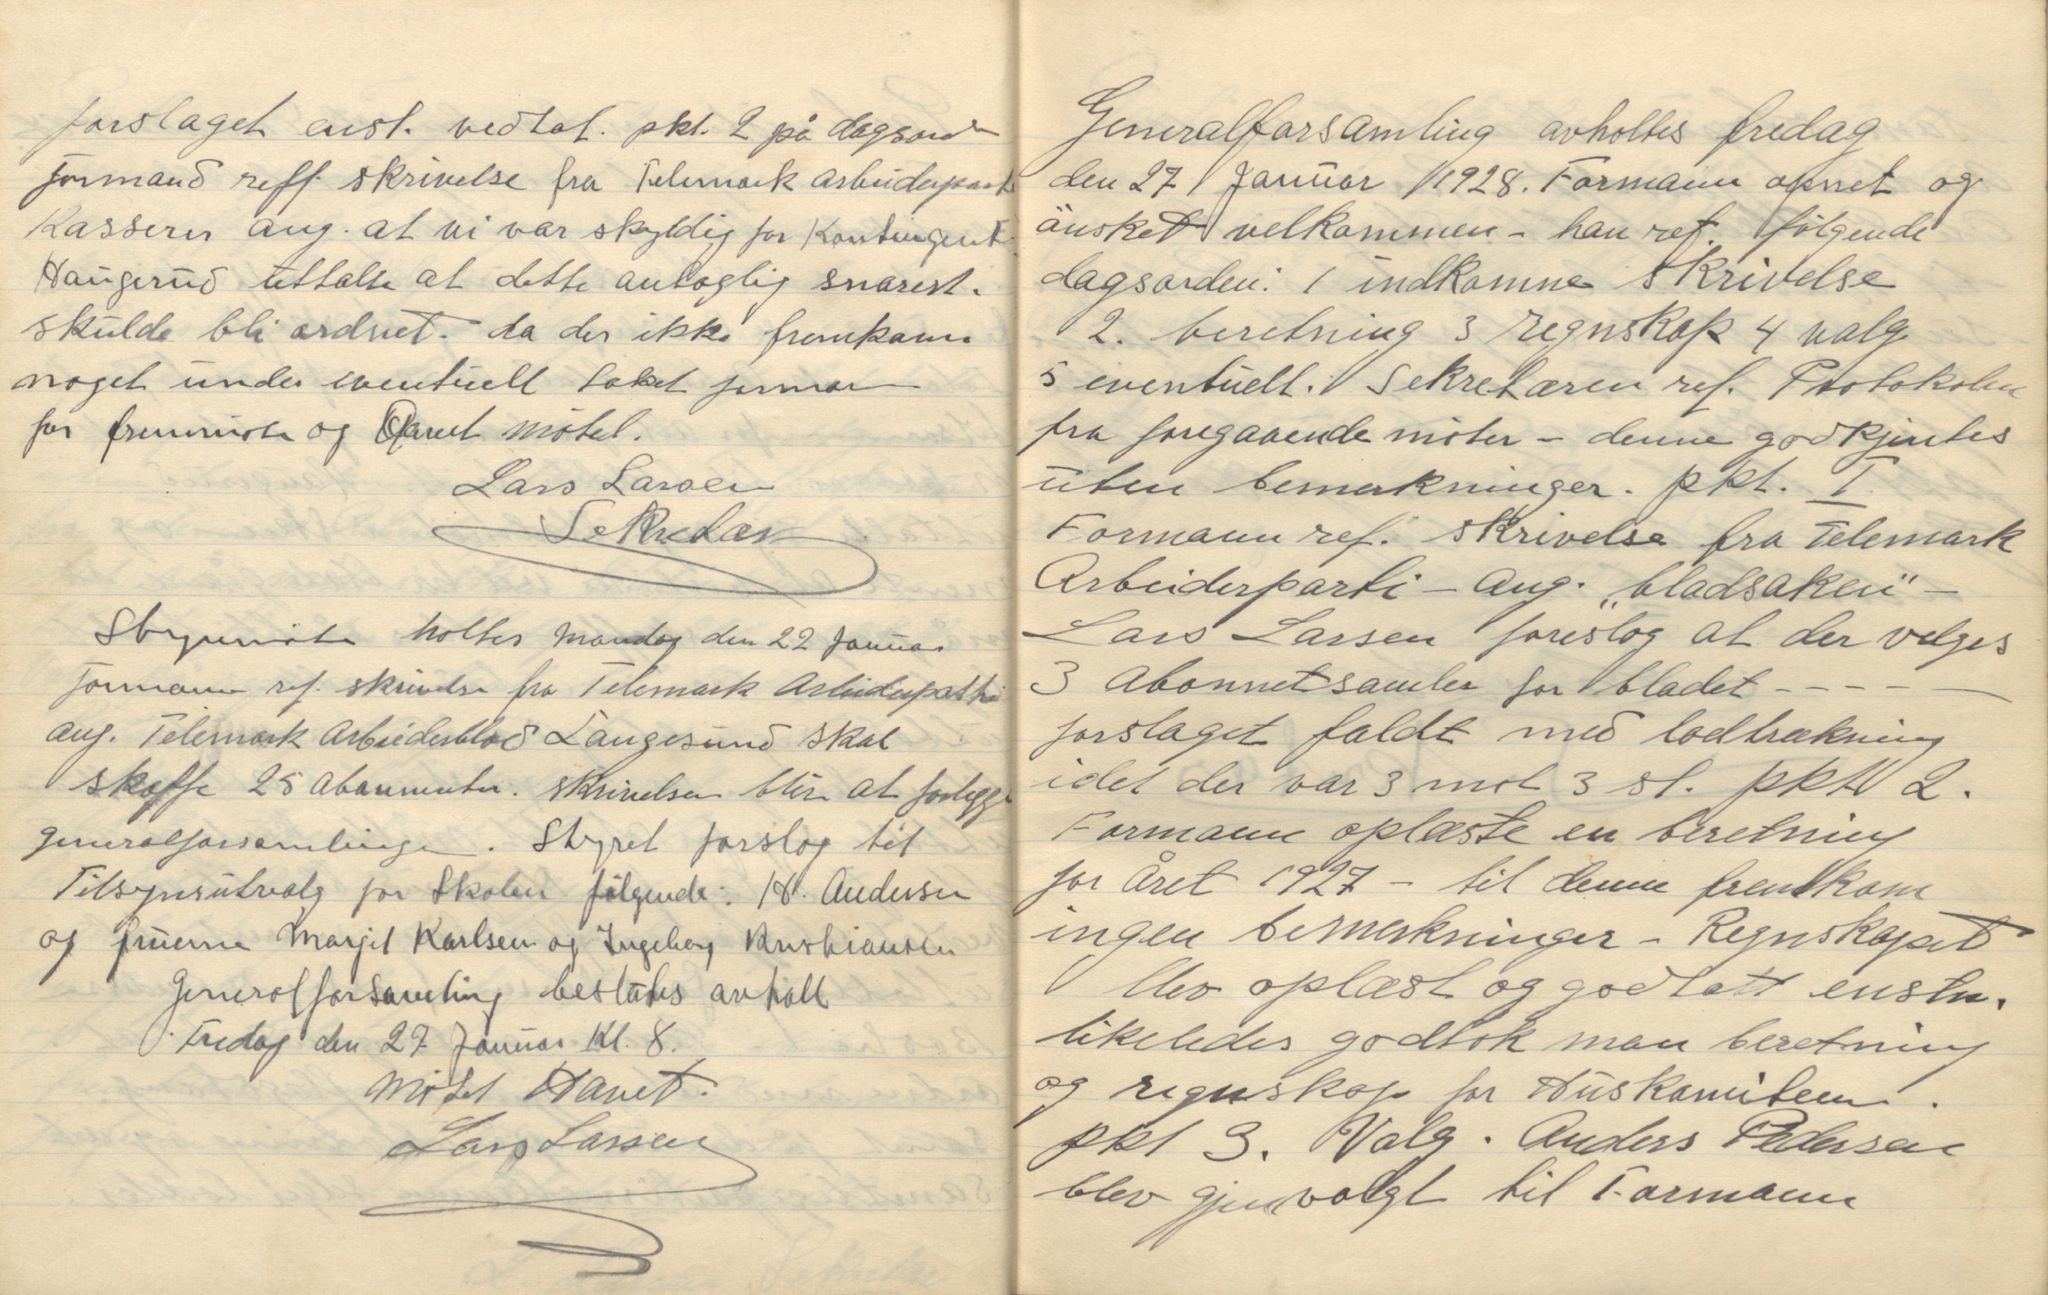 forslaget enst. vedtat. pkt. 2 på dagsord
Formand reff skrivelse fra Telemark arbeiderparti
Kasserer ang. at vi var skyldig for Kontingent
Haugerud uttalte at dette antaglig snarest.
skulde bli ordnet. da der ikke fremkom
noget under eventuelt taket forman
for fremmøte og hævet møtet.
Lars Larsen
Sekretær
Styremøte holtes mandag den 22 Januar
Formann ref. skrivelse fra Telemark Arbeiderparti
ang. Telemark Arbeiderblad Langesund skal
skaffe 25 abonnenter. skrivelsen blir at forlegge
generalforsamlingen. Styret forslog til
Tilsynsutvalg for Skolen følgende: H. Andersen
og fruerne Marjit Karlsen og Ingeborg Kristiansen
Generalforsamling besluttes avholt
Fredag den 27 Januar Kl. 8.
Møtet Hævet.
Lars Larsen
Generalforsamling avholtes fredag
den 27 Januar 1928. Formann åpnet og
ønsket velkommen – han ref. følgende
dagsorden: 1 indkomne skrivelse
2. beretning 3 regnskap 4 valg
5 eventuelt. Sekretæren ref. Protokolen
fra foregaaende møter – denne godkjentes
uten bemerkninger. pkt. I
Formann ref. skrivelse fra Telemark
Arbeiderparti – ang. „bladsaken" –
Lars Larsen foreslog at der velges
3 abonnetsamler for bladet – – – – –
forslaget faldt med lodtrækning
idet der var 3 mot 3 st. pkt 2.
Formann oplæste en beretning
for året 1927 – til denne fremkom
ingen bemerkninger – Regnskapet
blev oplæst og godtatt enstm.
likeledes godtok man beretning
og regnskap for Huskomiteen.
pkt 3. Valg. Anders Pedersen
blev gjenvalgt til Formann